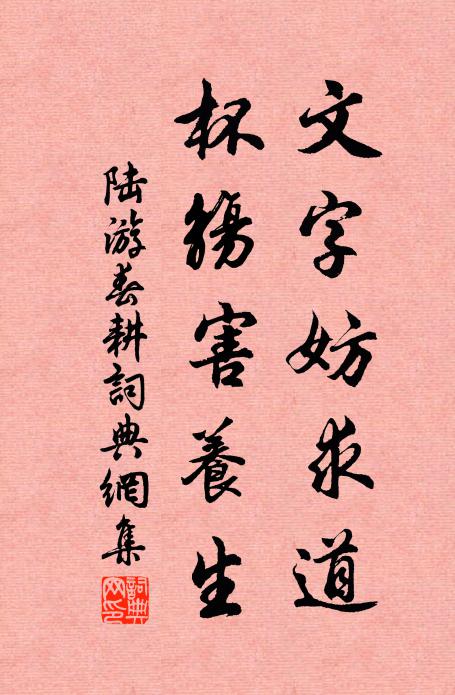 文字妨求道
杯觴害養生
陆游春耕詞典網集
詞典网印